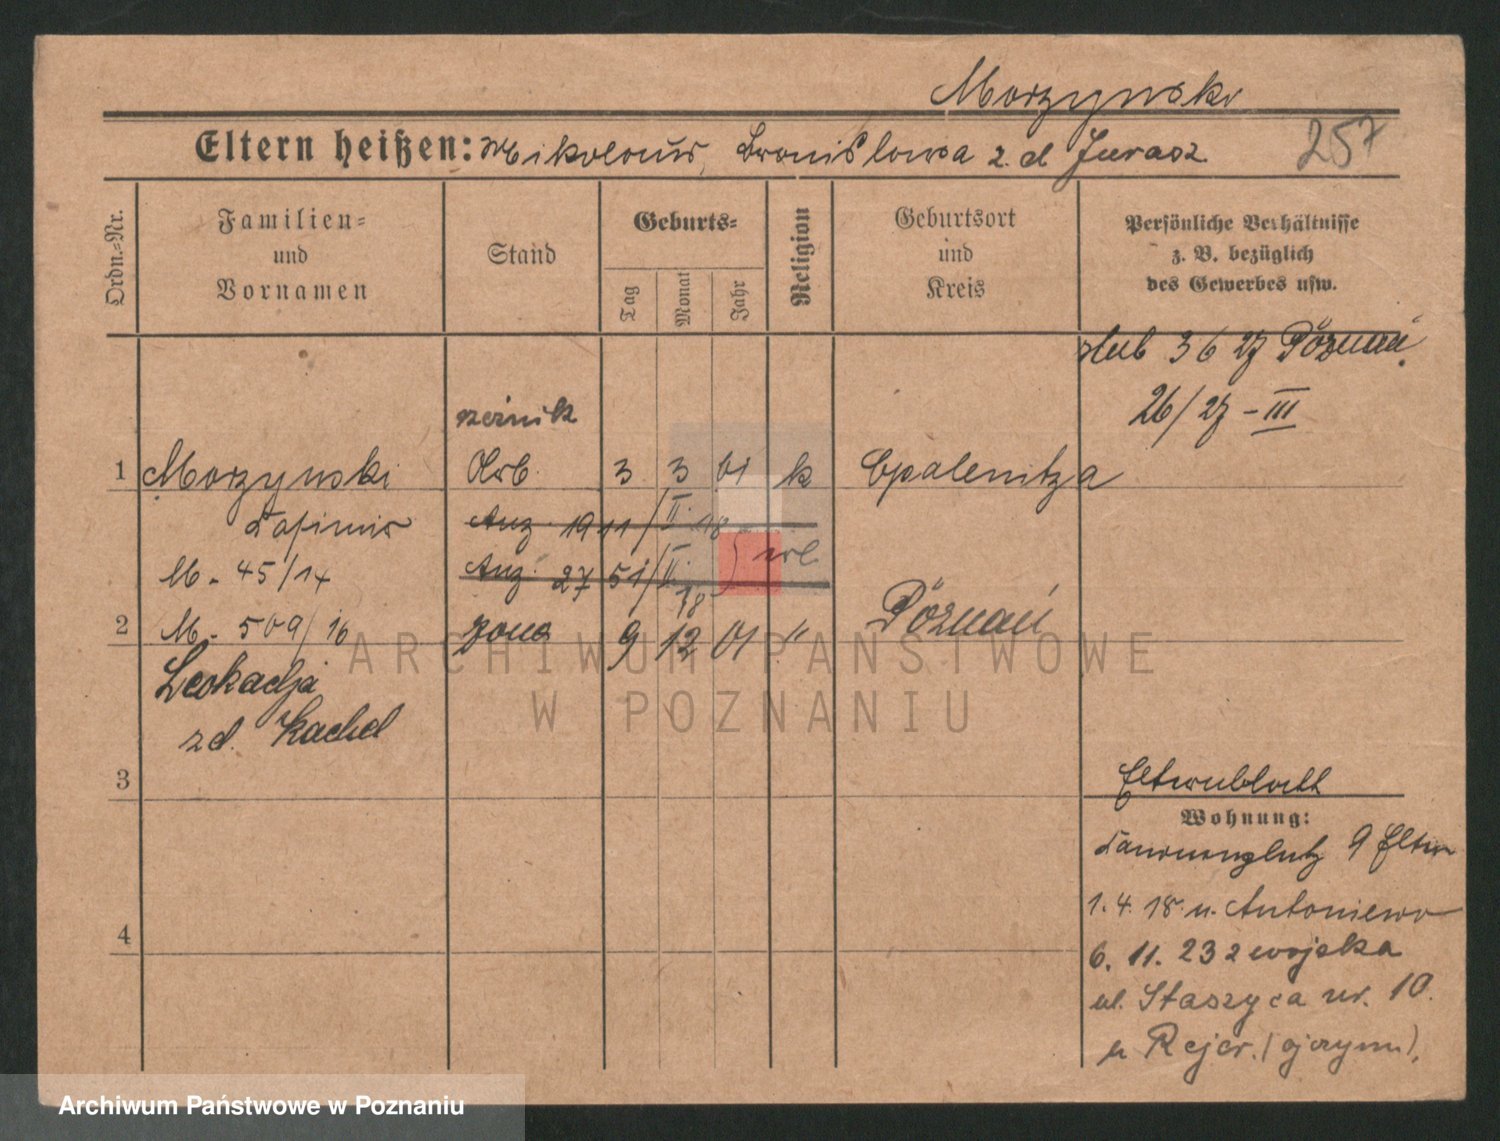 Morzynski
Eltern heißen: Mikolaus, Bronislowa z. d Jurasz
257
Ordn.-Nr.
Familien-
und
Vornamen
Stand
Geburts-
Tag
Monat
Jahr
Religion
Geburtsort
und
Kreis
Persönliche Verhältnisse
z. B. bezüglich
des Gewerbes usw.
ślub 3 6 27 Poznań.
26/27 - III
rzeźnik
1 Morzynski Arb. 3 3 01 k Opalenitza
Kasimir Anz. 1911/II. 18
M. 45/14 Anz. 27 51/II. 18
2 M. 509/16 żona 9 12 01 " Poznań
Leokadja
z d. Kachel
3
4
Elternblatt
Wohnung:
9 Eltern
1. 4. 18. n. Antoniewo
6. 11. 23 z wojska
ul. Staszyca nr. 10.
u Rejer.
ARCHIWUM PAŃSTWOWE
W POZNANIU
Archiwum Państwowe w Poznaniu